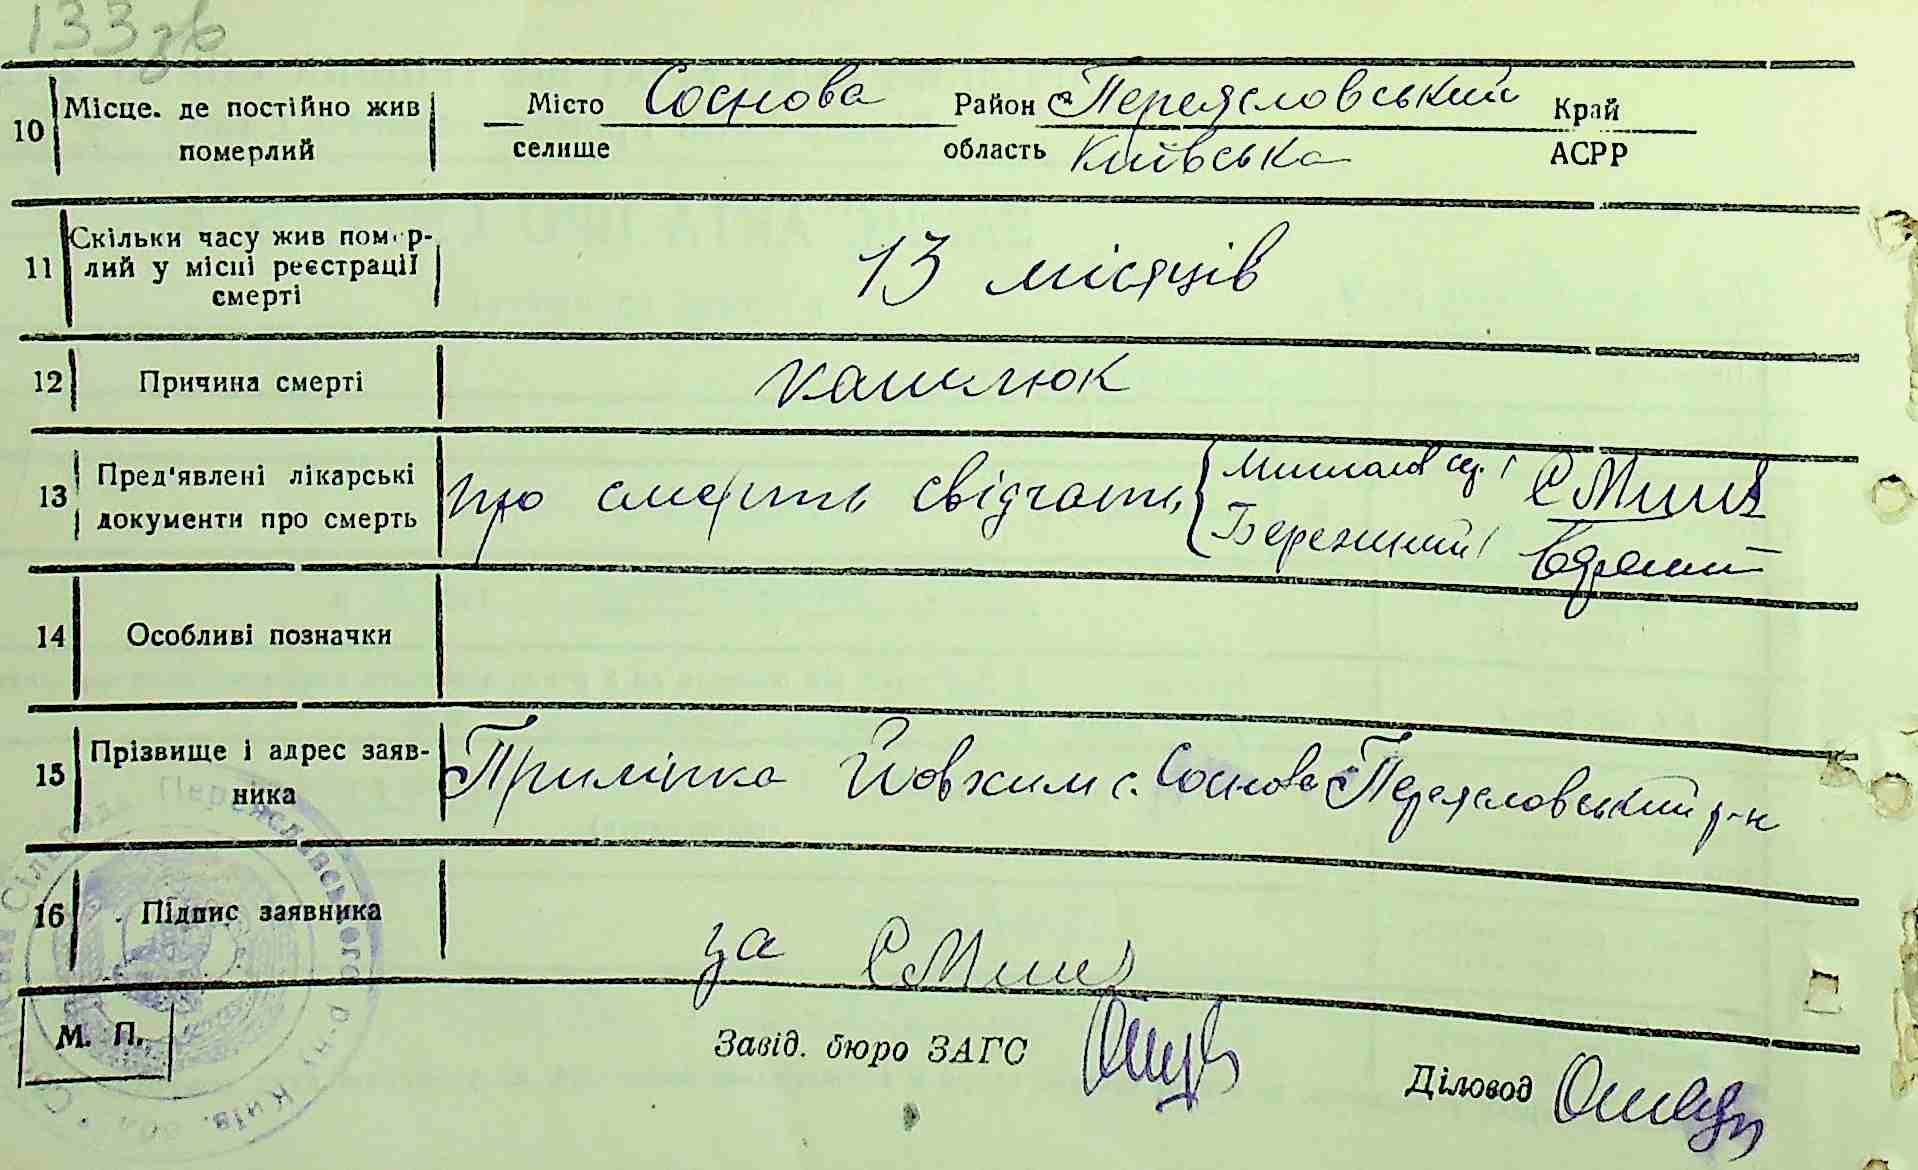 133зв
10 Місце. де постійно жив померлий
Місто Соснова Район Переясловський Край
селище область Київська АСРР
11 Скільки часу жив помер-
лий у місці реєстрації
смерті
13 місяців
12 Причина смерті кашлюк
13 Пред'явлені лікарські
документи про смерть
про смерть свідчать
Бережний
14 Особливі позначки
15 Прізвище і адрес заяв-
ника
Приліпка Йовхим с. Соснова Переясловський р-н
16 Підпис заявника
за
М. П.
Завід. бюро ЗАГС
Діловод
Сільрада Переяславського р-ну Київ.